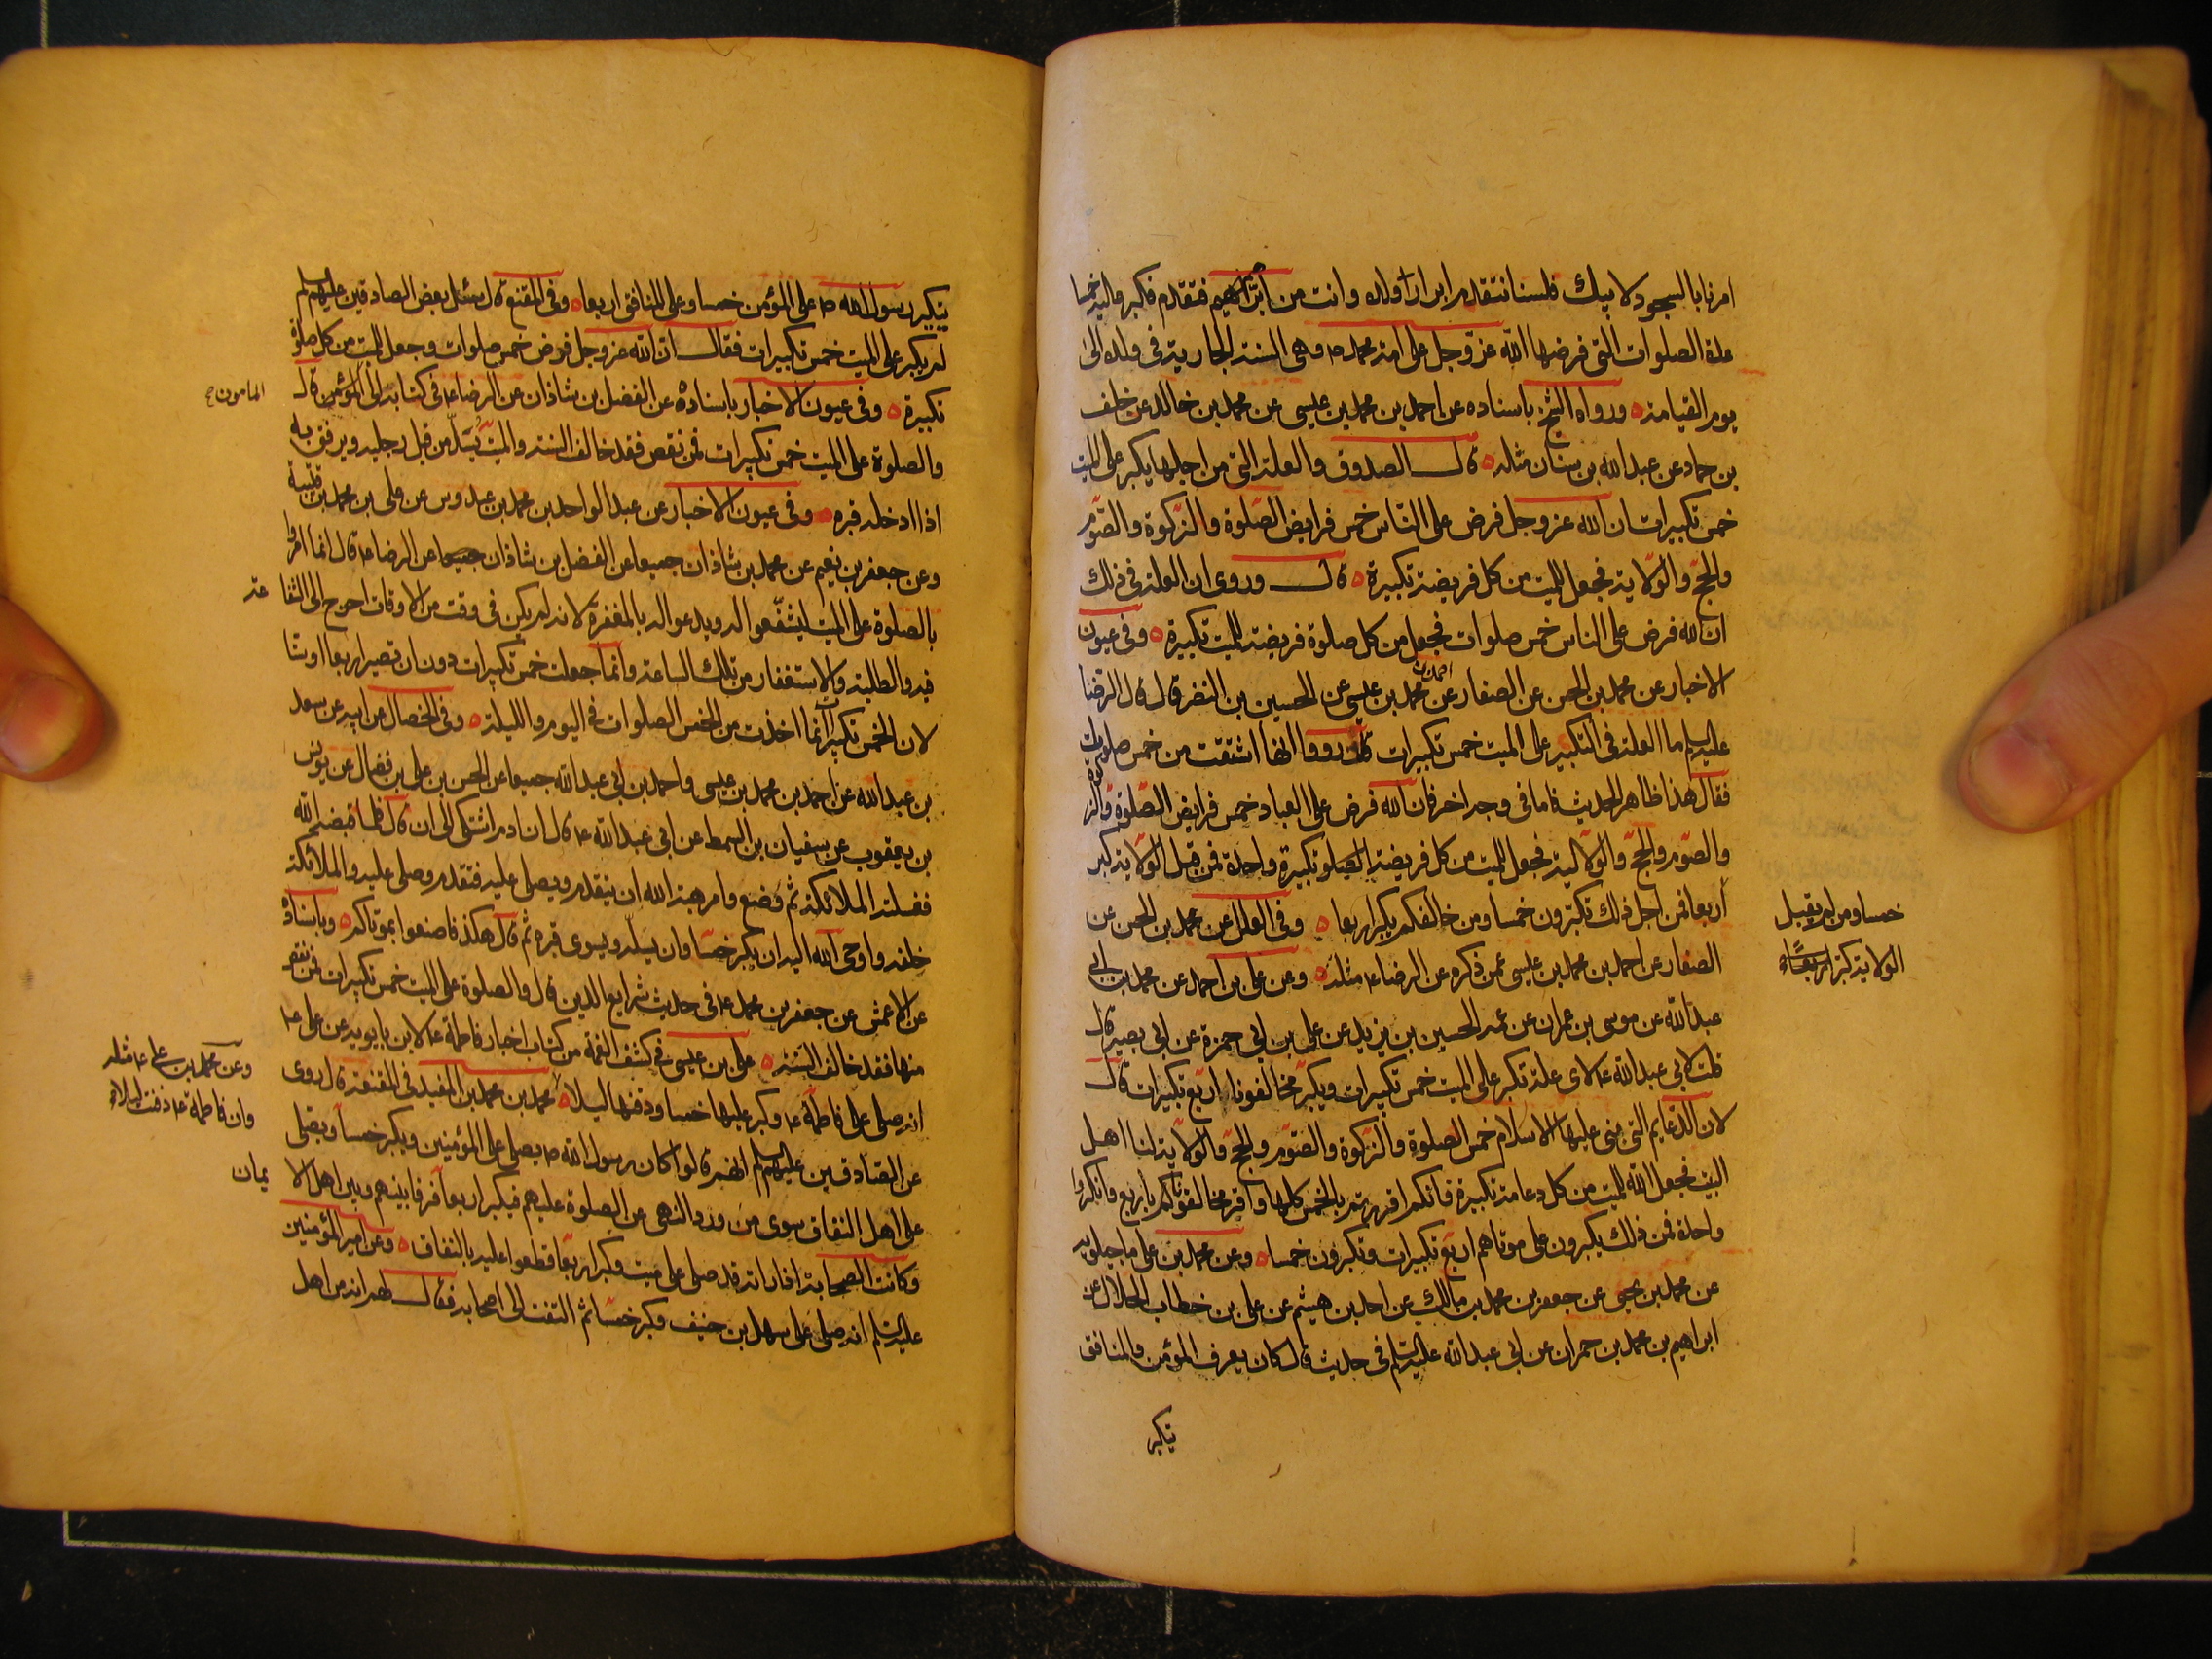 امرنا بالسجود لابيك فلسنا نتقدم ابرار اولاده وانت من ابرهيم فتقدم فكبر عليه خمسا
عدة الصلوات التي فرضها الله عز وجل على امة محمد ص وهي السنة الجارية في ولده الى
يوم القيامة ورواه الشيخ باسناده عن احمد بن محمد بن عيسى عن محمد بن خالد عن خلف
بن حماد عن عبد الله بن سنان مثله قال الصدوق والعلة التي من اجلها يكبر على الميت
خمس تكبيرات ان الله عز وجل فرض على الناس خمس فرايض الصلوة والزكوة والصوم
والحج والولاية فجعل للميت من كل فريضة تكبيرة قال وروى ان العلة في ذلك
ان الله فرض على الناس خمس صلوات فجعل من كل صلوة فريضة للميت تكبيرة وفي عيون
الاخبار عن محمد بن الحسن عن الصفار عن احمد بن محمد بن عيسى عن الحسين بن النضر قال قال الرضا
عليه السلم ما العلة في التكبير على الميت خمس تكبيرات قلت رووا انها اشتقت من خمس صلوات
فقال هذا ظاهر الحديث فاما في وجه اخر فان الله فرض على العباد خمس فرايض الصلوة والزكوة
والصوم والحج والولاية فجعل للميت من كل فريضة تكبيرة واحدة فمن قبل الولاية كبر
خمسا ومن لم يقبل
الولاية كبر اربعا
اربعا فمن اجل ذلك تكبرون خمسا ومن خالفكم يكبر اربعا وفي العلل عن محمد بن الحسن عن
الصفار عن احمد بن محمد بن عيسى عمن ذكره عن الرضا ع مثله وعن علي بن احمد عن محمد بن ابي
عبد الله عن موسى بن عمران عن عمه الحسين بن يزيد عن علي بن ابي حمزة عن ابي بصير قال
قلت لابي عبد الله ع لاى علة تكبر على الميت خمس تكبيرات ويكبر مخالفونا اربع تكبيرات قال
لان الدعايم التي بني عليها الاسلام خمس الصلوة والزكوة والصوم والحج والولاية لنا اهل
البيت فجعل الله للميت من كل دعامة تكبيرة فانكم اقررتم بالخمس كلها واقر مخالفوكم باربع وانكروا
واحدة فمن ذلك يكبرون على موتاهم اربع تكبيرات وتكبرون خمسا وعن محمد بن علي ماجيلويه
عن محمد بن يحيى عن جعفر بن محمد بن مالك عن احمد بن هيثم عن علي بن خطاب الخلال عن
ابراهيم بن محمد بن حمران عن ابي عبد الله عليه السلم في حديث قال كان يعرف المؤمن والمنافق
بتكبير
بتكبير رسول الله ص على المؤمن خمسا وعلى المنافق اربعا وفي المقنع قال سئل بعض الصادقين عليهم السلم
لم يكبر على الميت خمس تكبيرات فقال ان الله عز وجل فرض خمس صلوات وجعل للميت من كل صلوة
تكبيرة وفي عيون الاخبار باسناده عن الفضل بن شاذان عن الرضا ع في كتابه الى المؤمن قال
المامون ح
والصلوة على الميت خمس تكبيرات فمن نقص فقد خالف السنة والميت يسل من قبل رجليه ويرفق به
اذا ادخله قبره وفي عيون الاخبار عن عبد الواحد بن محمد بن عبدوس عن علي بن محمد بن قتيبة
وعن جعفر بن نعيم عن محمد بن شاذان جميعا عن الفضل بن شاذان عن الرضا ع قال انما امروا
بالصلوة على الميت ليشفعوا له ويدعوا له بالمغفرة لانه لم يكن في وقت من الاوقات احوج الى الشفا
عة
فيه والطلبة والاستغفار من تلك الساعة وانما جعلت خمس تكبيرات دون ان تصير اربعا او ستا
لان الخمس تكبيرات انما اخذت من الخمس الصلوات في اليوم والليلة وفي الخصال عن ابيه عن سعد
بن عبد الله عن احمد بن محمد بن عيسى واحمد بن ابي عبد الله جميعا عن الحسن بن علي بن فضال عن يونس
بن يعقوب عن سفيان بن السمط عن ابي عبد الله ع قال ان ادم اشتكى الى ان قال فلما قبضه الله
فغسلته الملائكة ثم وضع وامر هبة الله ان يتقدم ويصلي عليه فتقدم وصلى عليه والملائكة
خلفه واوحى الله اليه ان يكبر خمسا وان يسله ويسوى قبره ثم قال هكذا فاصنعوا بموتاكم وباسناده
عن الاعمش عن جعفر بن محمد ع في حديث شرايع الدين قال والصلوة على الميت خمس تكبيرات فمن نقص
منها فقد خالف السنة علي بن عيسى في كشف الغمة من كتاب اخبار فاطمة ع لابن بابويه عن علي ع
وعن محمد بن علي ع مثله
وان فاطمة ع دفنت ليلا
انه صلى على فاطمة ع وكبر عليها خمسا ودفنها ليلا محمد بن محمد بن المفيد في المقنعة قال روى
عن الصادقين عليهم السلم انهم قالوا كان رسول الله ص يصلي على المؤمنين ويكبر خمسا ويصلي
على اهل النفاق سوى من ورد النهي عن الصلوة عليهم فيكبر اربعا فرقا بينهم وبين اهل الا
يمان
وكانت الصحابة اذا رات قد صلى على ميت وكبر اربعا قطعوا عليه بالنفاق وعن امير المؤمنين
عليه السلم انه صلى على سهل بن حنيف وكبر خمسا ثم التفت الى اصحابه فقال لهم انه من اهل